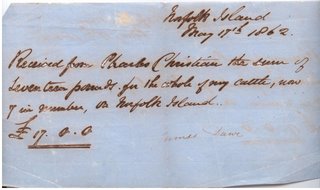 Norfolk Island
May 17th 1862.
Received from Charles Christian the sum of
Seventeen pounds, for the whole of my cattle, now
7 in number, on Norfolk Island.
£17.0.0